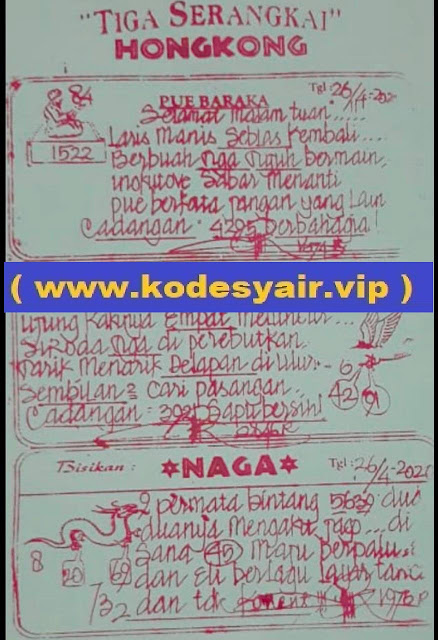 "TIGA SERANGKAI"
HONGKONG
84
Tgl: 26/4-202
PUE BARAKA
Selamat malam tuan.....
Laris Manis Seblas Kembali....
1522
Berbuah Tiga Tujuh bermain,
Sabar Menanti
pue berkata, jangan yang Lain
Cadangan : 4295 berbahagia!
( www.kodesyair.vip )
ujung kakinya Empat meluncur...
Si Roda Tiga di perebutkan.
Tarik Menarik Delapan di ulur.- 6
Sembilan 2 Cari pasangan.
42 9
Cadangan : 3021 Sapu bersih!
Bisikan : NAGA Tgl : 26/4-202
2 permata bintang 5639 dua
duanya mengaku jago...di
8
Sana 45 maru berpalu
20 69
dan Eli berlagu
732 dan tdk Koment !!! 1976P